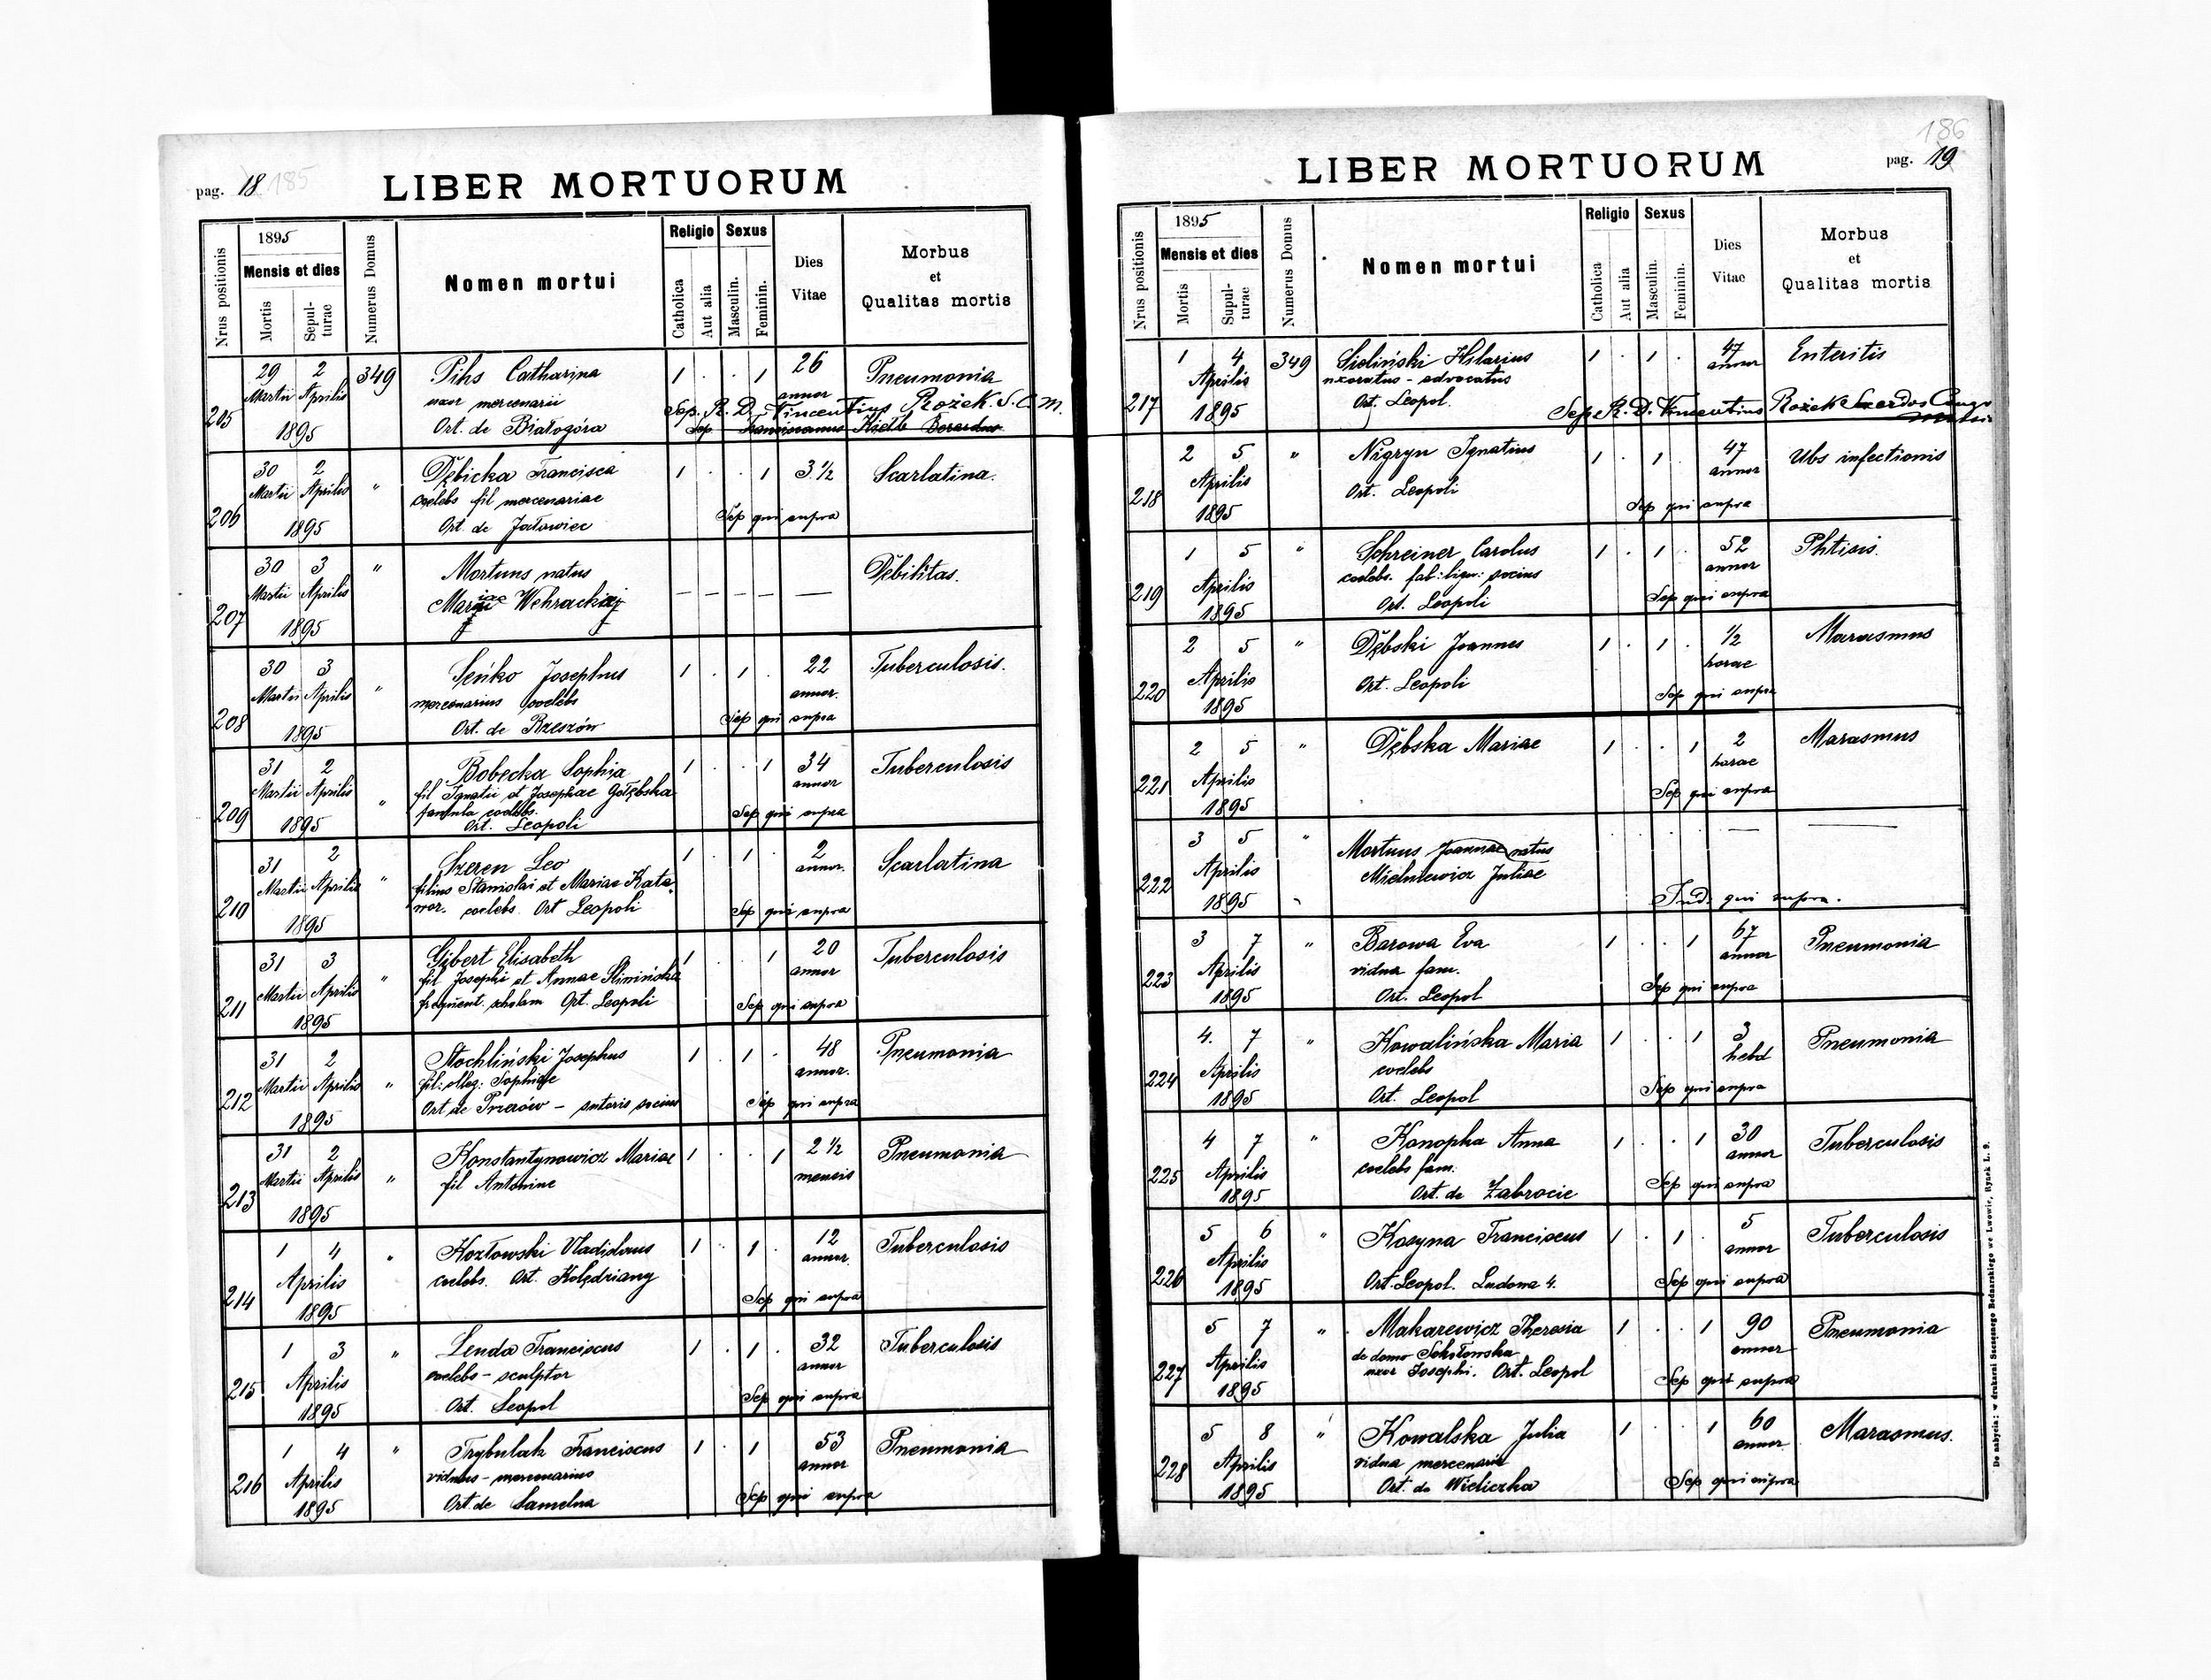 pag. 18 185
LIBER MORTUORUM
Nrus positionis
1895
Mensis et dies
Mortis
Sepul-
turae
Numerus Domus
Nomen mortui
Religio
Catholica
Aut alia
Sexus
Masculin.
Feminin.
Dies
Vitae
Morbus
et
Qualitas mortis
205 29 Martii 2 Aprilis 1895 349
Pihs Catharina
uxor mercenarii
Ort. de Białogóra
1 . . 1 26 annor Pneumonia
Sep. R. D. Vincentius Rożek. S. C. M.
206 30 Martii 2 Aprilis 1895 "
Dębicka Francisca
coelebs fil mercenariae
Ort. de Jałowiec
1 . . 1 3 1/2 Scarlatina.
Sep qui supra
207 30 Martii 3 Aprilis 1895 "
Mortuus natus
Mariae
— — — — — Debilitas.
208 30 Martii 3 Aprilis 1895 "
Seńko Josephus
mercenarius coelebs
Ort. de Rzeszów
1 . 1 . 22 annor. Tuberculosis.
Sep qui supra
209 31 Martii 2 Aprilis 1895 "
Bobecka Sophia
fil Ignatii et Josephae Gołębska
famula coelebs.
Ort. Leopoli
1 . . 1 34 annor Tuberculosis
Sep qui supra
210 31 Martii 2 Aprilis 1895 "
Szeren Leo
filius Stanislai et Mariae
coelebs Ort Leopoli
1 . 1 . 2 annor. Scarlatina
Sep qui supra
211 31 Martii 3 Aprilis 1895 "
Gibert Elisabeth
fil Josephi et Annae
frequent. scholam Ort. Leopoli
1 . . 1 20 annor Tuberculosis
Sep qui supra
212 31 Martii 2 Aprilis 1895 "
Stochliński Josephus
fil: illeg: Sophiae
Ort de – sutoris socius
1 . 1 . 48 annor. Pneumonia
Sep qui supra
213 31 Martii 2 Aprilis 1895 "
Konstantynowicz Mariae
fil Antonine
1 . . 1 2 1/2 mensis Pneumonia
214 1 4 Aprilis 1895 "
Kozłowski Vladislaus
coelebs. Ort. Kolędziany
1 . 1 . 12 annor. Tuberculosis
Sep qui supra
215 1 3 Aprilis 1895 "
Lenda Franciscus
coelebs – sculptor
Ort. Leopol
1 . 1 . 32 annor Tuberculosis
Sep qui supra
216 1 4 Aprilis 1895 "
Trybulak Franciscus
viduus – mercenarius
Ort. de
1 . 1 53 annor Pneumonia
Sep qui supra
186
pag. 19
LIBER MORTUORUM
Nrus positionis
1895
Mensis et dies
Mortis
Supul-
turae
Numerus Domus
Nomen mortui
Religio
Catholica
Aut alia
Sexus
Masculin.
Feminin.
Dies
Vitae
Morbus
et
Qualitas mortis
217 1 4 Aprilis 1895 349
Sieliński Hilarius
uxoratus – advocatus
Ort. Leopol.
1 . 1 . 47 annor Enteritis
Sep R. D. Vincentius Rożek
218 2 5 Aprilis 1895 "
Nigryn Ignatius
Ort. Leopoli
1 . 1 . 47 annor Ubs infectionis
Sep qui supra
219 1 5 Aprilis 1895 "
Schreiner Carolus
coelebs. fab: lign: socius
Ort. Leopoli
1 . 1 . 52 annor Phtisis.
Sep qui supra
220 2 5 Aprilis 1895 "
Dębski Joannes
Ort. Leopoli
1 . 1 . 1/2 horae Marasmus
Sep qui supra
221 2 5 Aprilis 1895 "
Dębska Mariae
1 . . 1 2 horae Marasmus
Sep qui supra
222 3 5 Aprilis 1895 "
Mortuus Joannae natus
Mielniewicz Juliae
qui supra.
223 3 7 Aprilis 1895 "
Barowa Eva
vidua fam.
Ort. Leopol
1 . . 1 67 annor Pneumonia
Sep qui supra
224 4. 7 Aprilis 1895 "
Kowalińska Maria
coelebs
Ort. Leopol
1 . . 1 3 hebd Pneumonia
Sep qui supra
225 4 7 Aprilis 1895 "
Konopka Anna
coelebs fam:
Ort. de Zabrocie
1 . . 1 30 annor Tuberculosis
Sep qui supra
226 5 6 Aprilis 1895 "
Kosyna Franciscus
Ort. Leopol. Ludona 4.
1 . 1 . 5 annor Tuberculosis
Sep qui supra
227 5 7 Aprilis 1895 "
Makarewicz Theresia
de domo Sokołowska
uxor Josephi. Ort. Leopol
1 . . 1 90 annor Pneumonia
Sep qui supra
228 5 8 Aprilis 1895 "
Kowalska Julia
vidua mercenarii
Ort. de Wieliczka
1 . . 1 60 annor Marasmus.
Sep qui supra
De nabycia: w drukarni Szczęsnego Bednarskiego we Lwowie, Rynek L. 9.